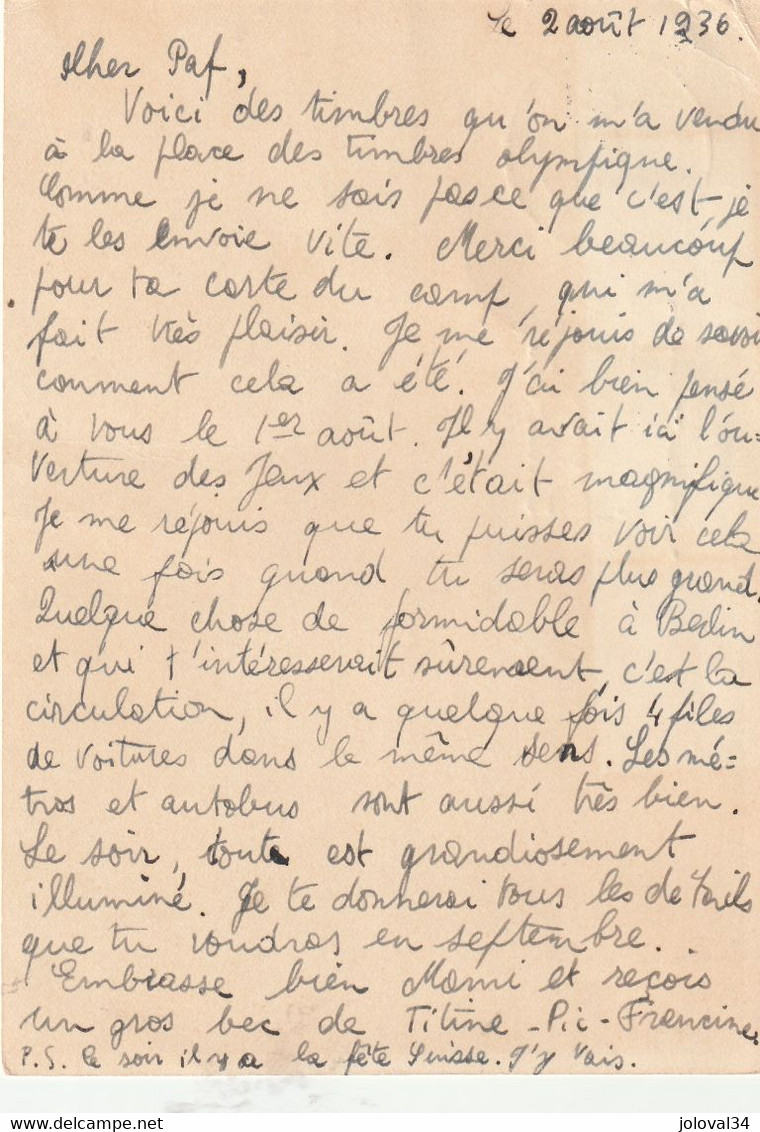 le 2 août 1936.
Cher Paf,
Voici des timbres qu'on m'a vendu
à la place des timbres olympique.
Comme je ne sais pas ce que c'est, je
te les envoie vite. Merci beaucoup
pour ta carte du camp, qui m'a
fait très plaisir. Je me réjouis de savoir
comment cela a été. J'ai bien pensé
à vous le 1er août. Il y avait ici l'ou=
verture des Jeux et c'était magnifique
Je me réjouis que tu puisses voir cela
une fois quand tu seras plus grand.
Quelque chose de formidable à Berlin
et qui t'intéresserait sûrement, c'est la
circulation, il y a quelque fois 4 files
de voitures dans le même sens. Les mé=
tros et autobus sont aussi très bien.
Le soir, tout est grandiosement
illuminé. Je te donnerai tous les détails
que tu voudras en septembre.
Embrasse bien Mami et reçois
un gros bec de Titine-Pic-Francine.
P.S. Ce soir il y a la fête Suisse. J'y vais.
delcampe.net
joloval34